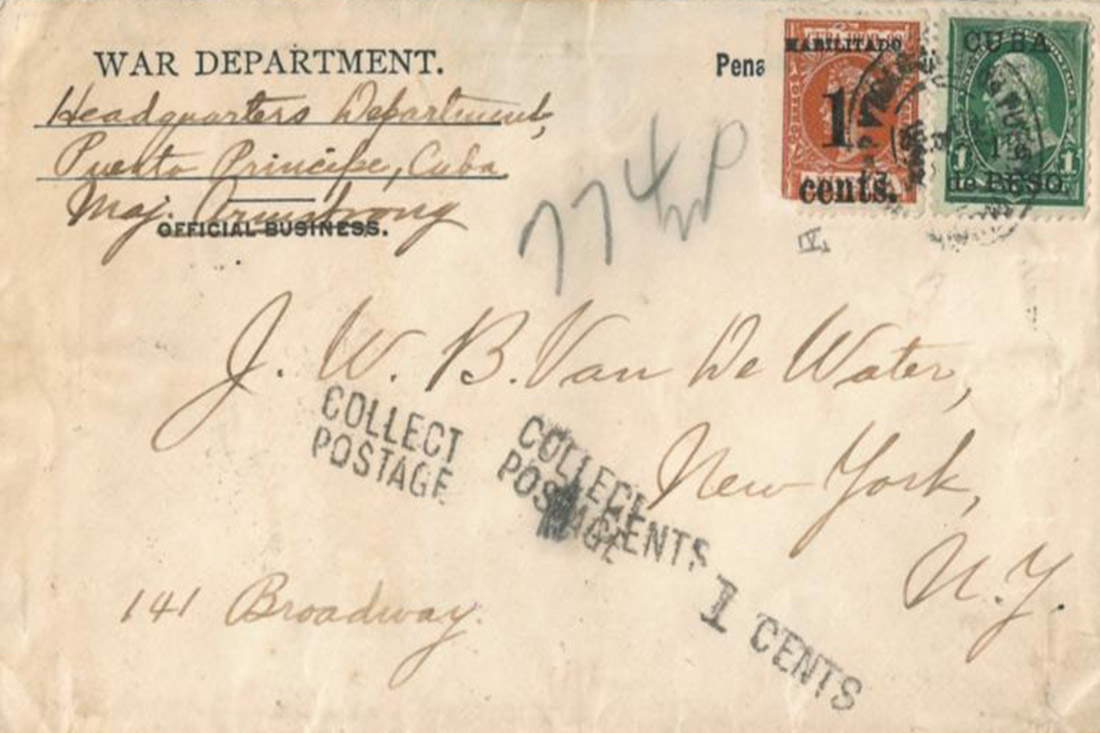 WAR DEPARTMENT.
Headquarters Department,
Puerto Principe, Cuba
Maj. Armstrong
OFFICIAL BUSINESS.
Pena
HABILITADO
1
cents.
CUBA
1 1
de PESO.
774
IV.
J. W. B. Van De Water,
New York,
N.Y.
141 Broadway.
COLLECT
POSTAGE
COLLECT
POSTAGE
CENTS
1 CENTS